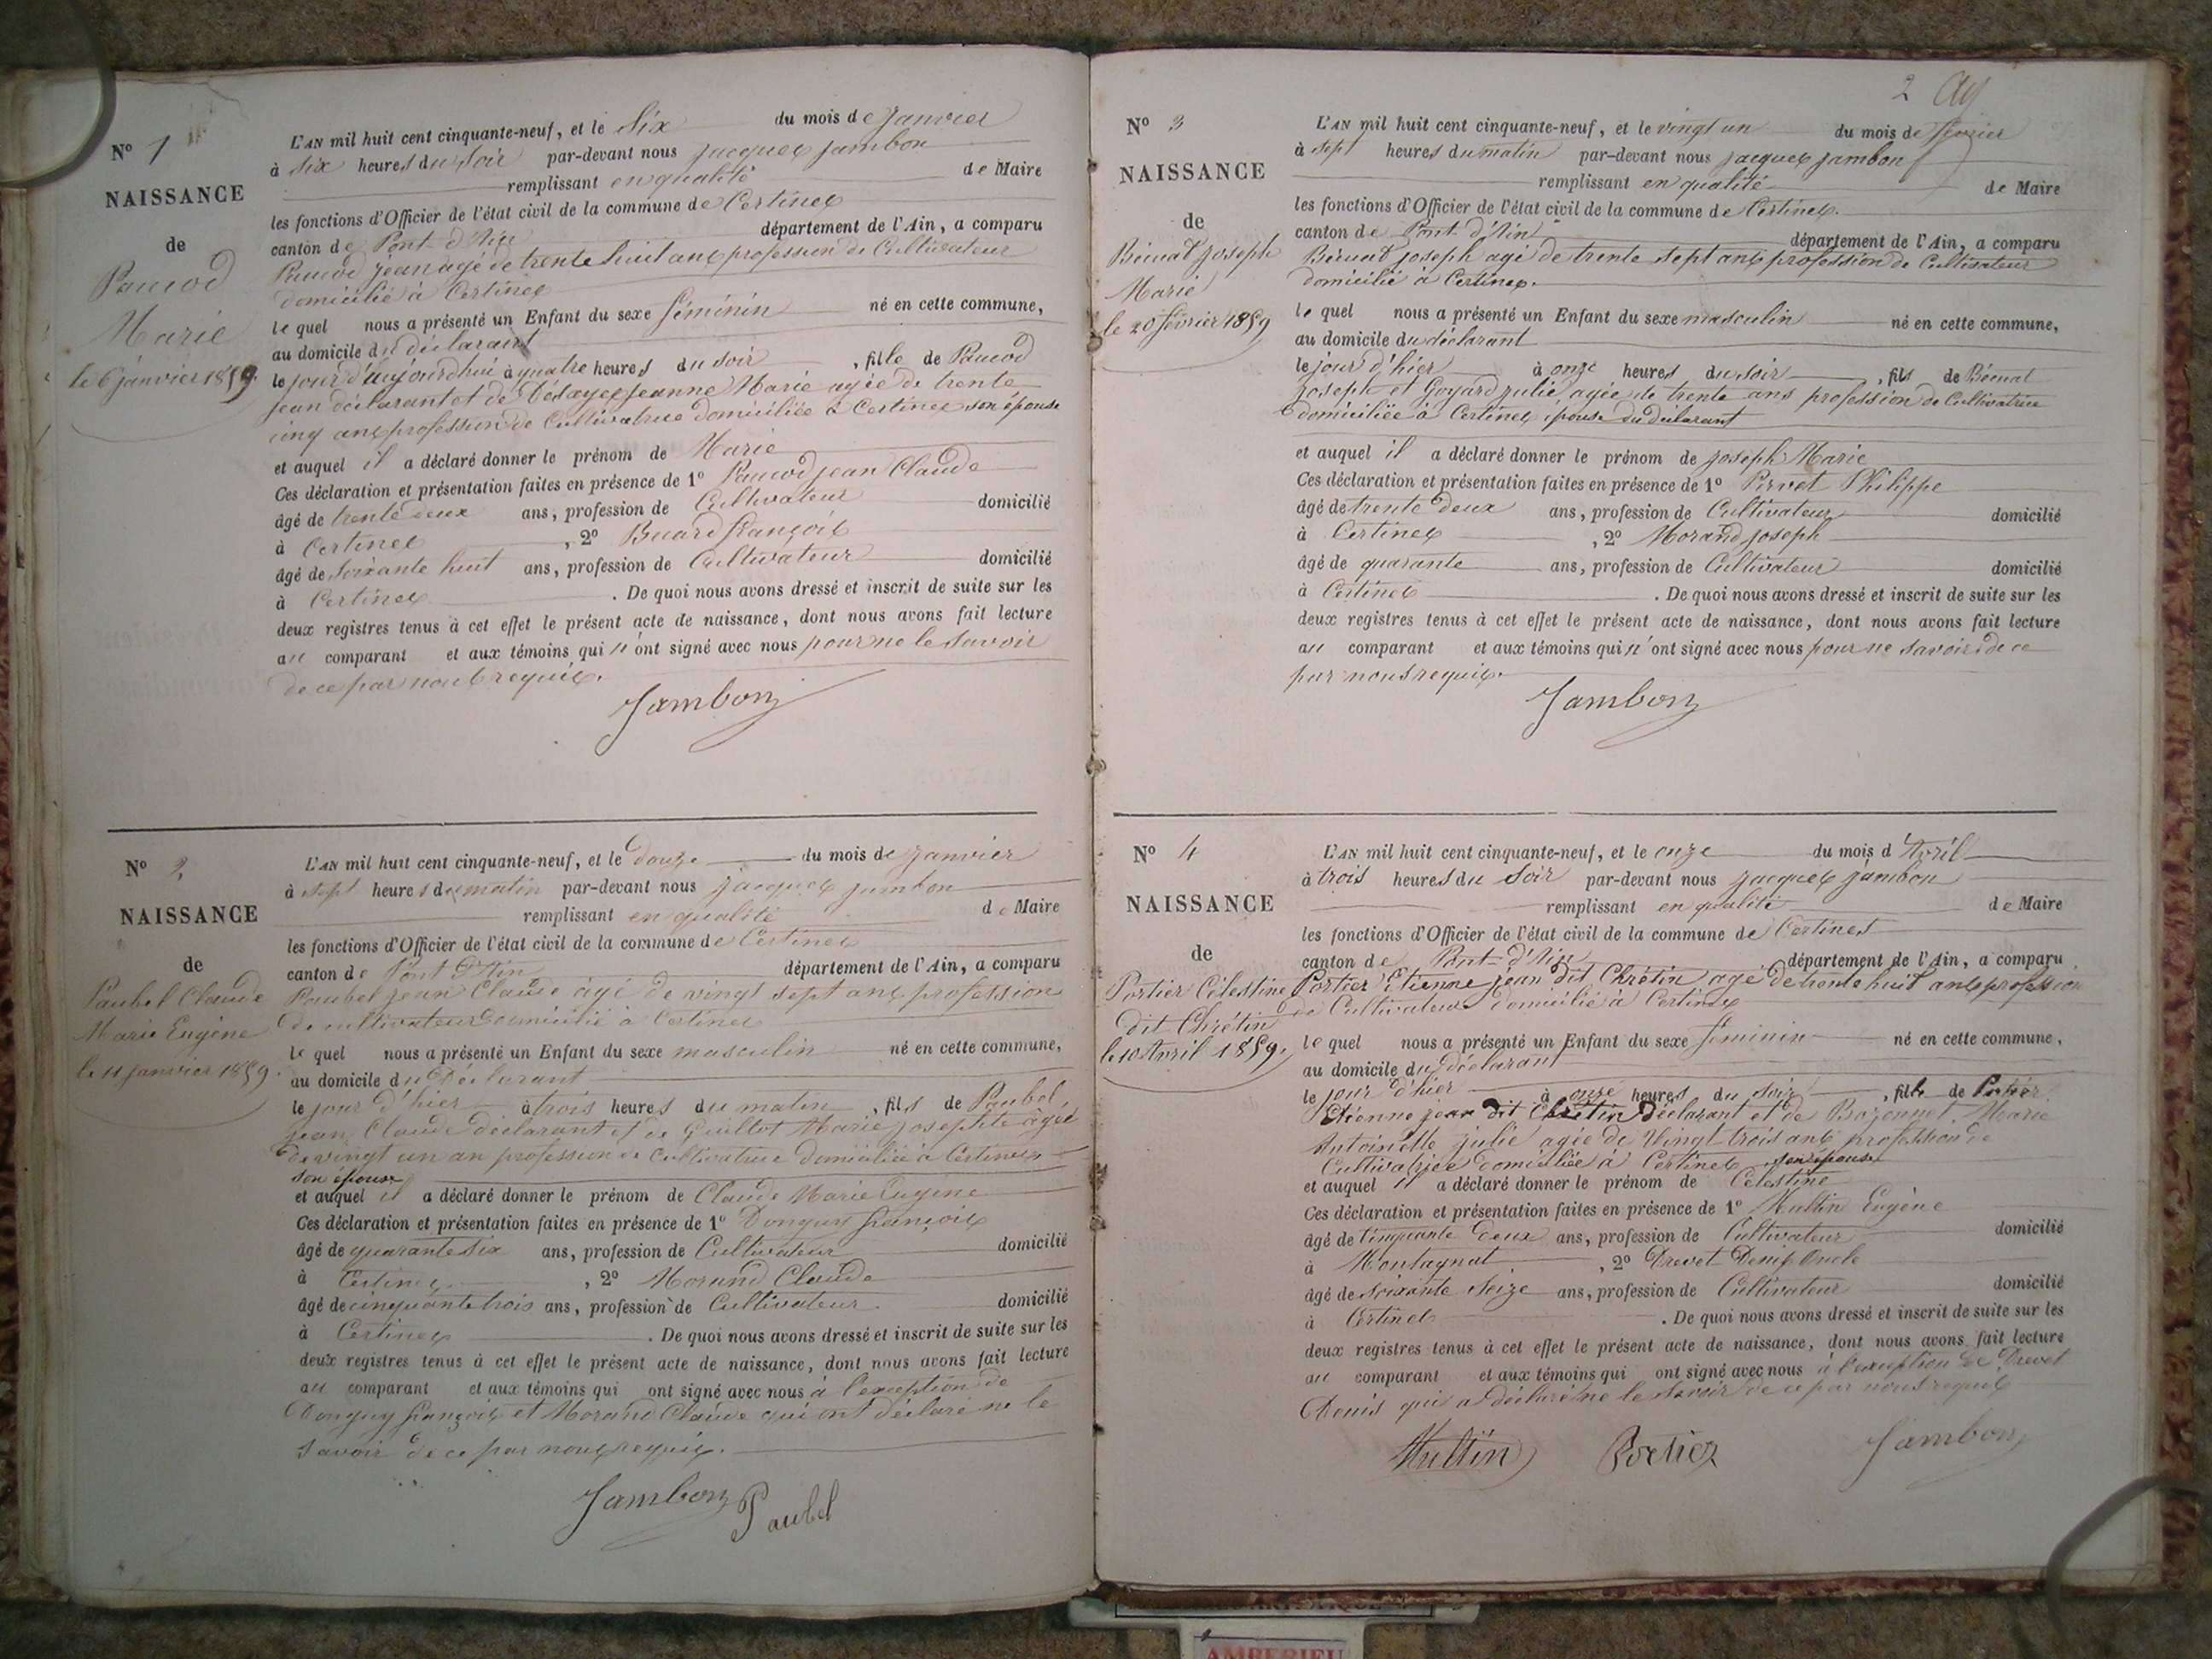 N° 1
NAISSANCE
de
Paucod
Marie
le 6 janvier 1859.
L'AN mil huit cent cinquante-neuf, et le Six du mois de janvier
à six heures du soir par-devant nous jacques jambon
remplissant en qualité de Maire
les fonctions d'Officier de l'état civil de la commune de Certines
canton de Pont d'Ain département de l'Ain, a comparu
Paucod jean agé de trente huit ans profession de Cultivateur
domicilié à Certines
le quel nous a présenté un Enfant du sexe féminin né en cette commune,
au domicile du déclarant
le jour d'aujourdhui à quatre heures du soir, fille de Paucod
jean déclarant et de Desayes jeanne Marie agée de trente
cinq ans profession de Cultivatrice domiciliée à Certines son épouse
et auquel il a déclaré donner le prénom de Marie
Ces déclaration et présentation faites en présence de 1° Paucod jean Claude
âgé de trente deux ans, profession de Cultivateur domicilié
à Certines, 2° Buard françois
âgé de soixante huit ans, profession de Cultivateur domicilié
à Certines. De quoi nous avons dressé et inscrit de suite sur les
deux registres tenus à cet effet le présent acte de naissance, dont nous avons fait lecture
au comparant et aux témoins qui n'ont signé avec nous pour ne le savoir
de ce par nous requis.
Jambon
N° 2
NAISSANCE
de
Paubel Claude
Marie Eugène
le 11 janvier 1859.
L'AN mil huit cent cinquante-neuf, et le douze du mois de janvier
à sept heures du matin par-devant nous jacques jambon
remplissant en qualité de Maire
les fonctions d'Officier de l'état civil de la commune de Certines
canton de Pont d'Ain département de l'Ain, a comparu
Paubel jean Claude agé de vingt sept ans profession
de cultivateur domicilié à Certines
le quel nous a présenté un Enfant du sexe masculin né en cette commune,
au domicile du Déclarant
le jour d'hier à trois heures du matin, fils de Paubel
jean Claude déclarant et de Guillot Marie josephte agée
de vingt un an profession de Cultivatrice Domiciliée à Certines
son épouse
et auquel il a déclaré donner le prénom de Claude Marie Eugène
Ces déclaration et présentation faites en présence de 1° Donguy françois
âgé de quarante six ans, profession de Cultivateur domicilié
à Certines, 2° Morand Claude
âgé de cinquante trois ans, profession de Cultivateur domicilié
à Certines. De quoi nous avons dressé et inscrit de suite sur les
deux registres tenus à cet effet le présent acte de naissance, dont nous avons fait lecture
au comparant et aux témoins qui ont signé avec nous à l'exception de
Donguy françois et Morand Claude qui ont déclaré ne le
savoir de ce par nous requis.
Jambon Paubel
2
N° 3
NAISSANCE
de
Bécuat joseph
Marie
le 20 février 1859
L'AN mil huit cent cinquante-neuf, et le vingt un du mois de février
à sept heures du matin par-devant nous jacques jambon
remplissant en qualité de Maire
les fonctions d'Officier de l'état civil de la commune de Certines.
canton de Pont d'Ain département de l'Ain, a comparu
Bécuat joseph agé de trente sept ans profession de Cultivateur
domicilié à Certines.
le quel nous a présenté un Enfant du sexe masculin né en cette commune,
au domicile du déclarant
le jour d'hier à onze heures du soir, fils de Bécuat
joseph et Goyard julie, agée de trente ans profession de Cultivatrice
domiciliée à Certines épouse du déclarant
et auquel il a déclaré donner le prénom de joseph Marie
Ces déclaration et présentation faites en présence de 1° Pervet Philippe
âgé de trente deux ans, profession de Cultivateur domicilié
à Certines, 2° Morand joseph
âgé de quarante ans, profession de Cultivateur domicilié
à Certines. De quoi nous avons dressé et inscrit de suite sur les
deux registres tenus à cet effet le présent acte de naissance, dont nous avons fait lecture
au comparant et aux témoins qui n'ont signé avec nous pour ne savoir de ce
par nous requis.
Jambon
N° 4
NAISSANCE
de
Portier Célestine
dit Chrétin
le 10 Avril 1859.
L'AN mil huit cent cinquante-neuf, et le onze du mois d'Avril
à trois heures du soir par-devant nous jacques jambon
remplissant en qualité de Maire
les fonctions d'Officier de l'état civil de la commune de Certines
canton de Pont-d'Ain département de l'Ain, a comparu
Portier Etienne jean dit Chrétin agé de trente huit ans profession
de Cultivateur domicilié à Certines
le quel nous a présenté un Enfant du sexe féminin né en cette commune,
au domicile du déclarant
le jour d'hier à onze heures du soir, fille de Portier
Etienne jean dit Chrétin Déclarant et de Brazonnet Marie
Antoinette julie agée de vingt trois ans profession de
Cultivatrice domiciliée à Certines son épouse
et auquel il a déclaré donner le prénom de Célestine
Ces déclaration et présentation faites en présence de 1° Multin Eugène
âgé de Cinquante deux ans, profession de Cultivateur domicilié
à Montagnat, 2° Drevet Denis Oncle
âgé de soixante seize ans, profession de Cultivateur domicilié
à Certines. De quoi nous avons dressé et inscrit de suite sur les
deux registres tenus à cet effet le présent acte de naissance, dont nous avons fait lecture
au comparant et aux témoins qui ont signé avec nous à l'exception de Drevet
Denis qui a déclaré ne le savoir de ce par nous requis
Multin Portier Jambon
AMBERIEU